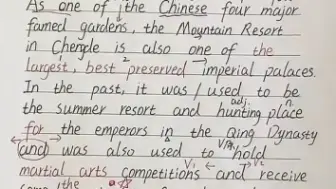 As one of the Chinese four major
famed gardens, the Mountain Resort
in Chengde is also one of the
largest, best preserved imperial palaces.
In the past, it was / used to be
adj. n.
the summer resort and hunting place
for the emperors in the Qing Dynasty
and was also used to hold
V1 V2
martial arts competitions and receive
the